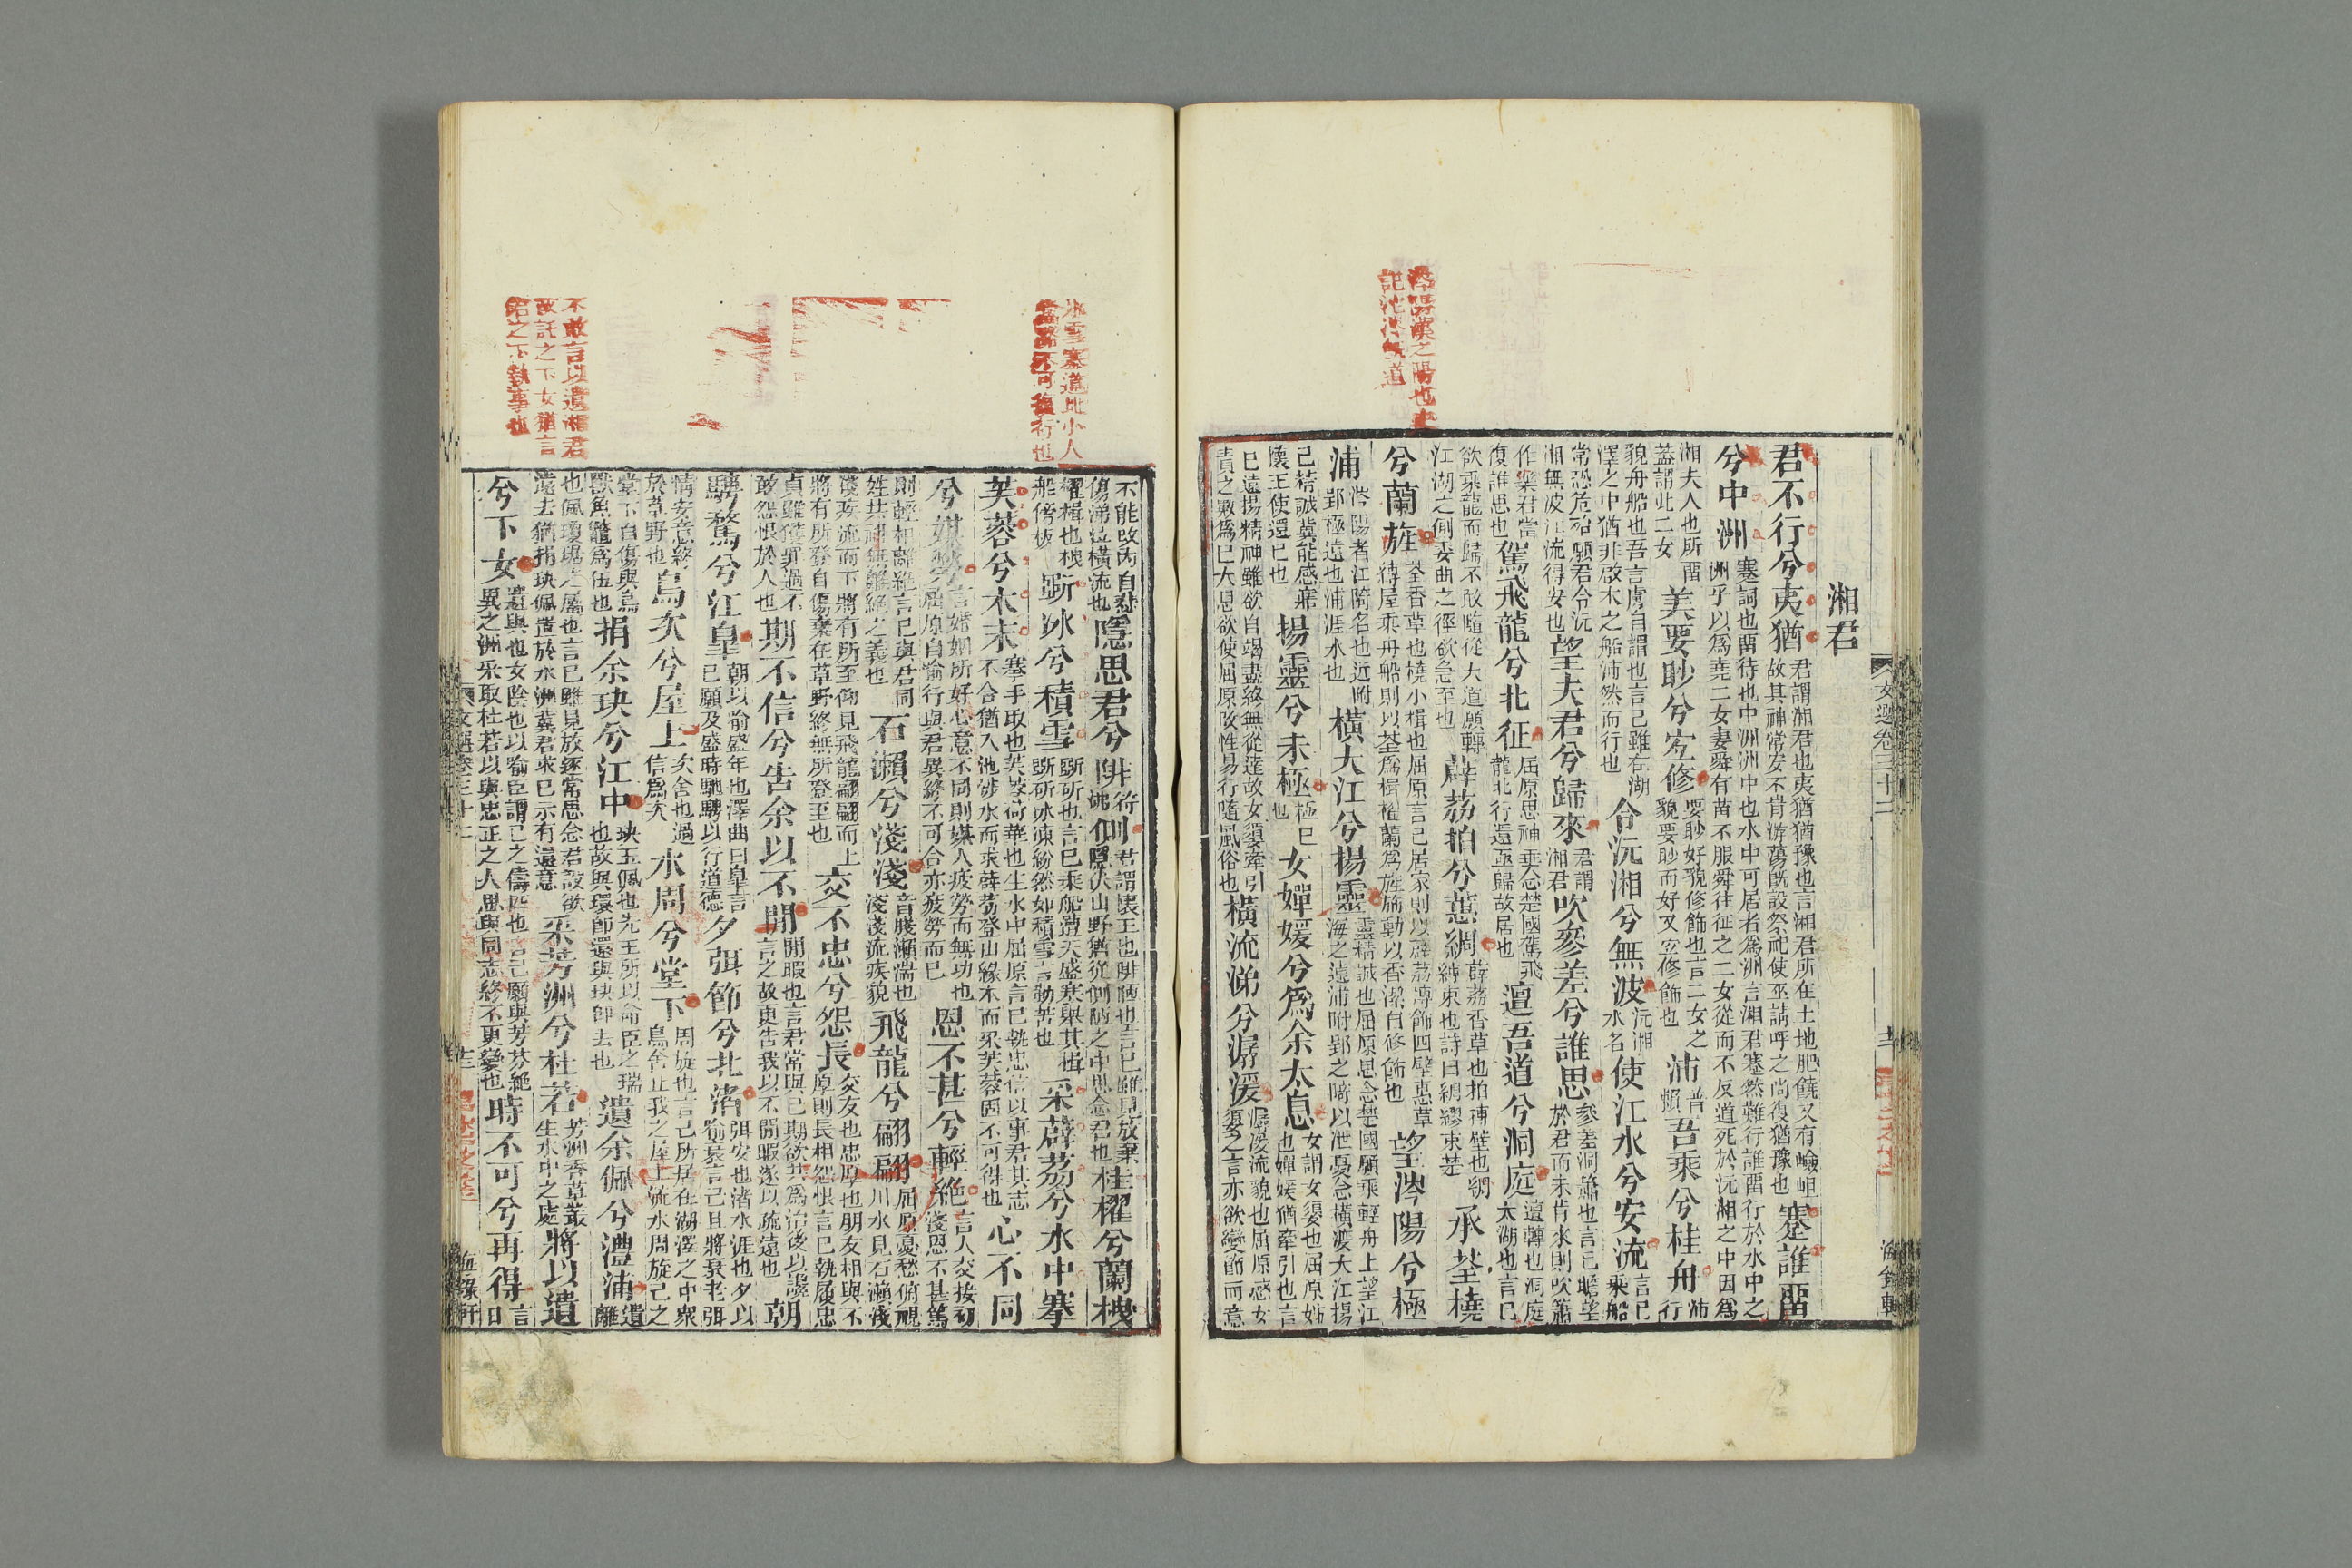 湘君
君不行兮夷猶君謂湘君也夷猶猶豫也言湘君所在土地肥饒又有嶮岨故其神常安不肯游蕩既設祭祀使巫請呼之尚復猶豫也蹇誰留
兮中洲蹇詞也留待也中洲洲中也水中可居者爲洲言湘君蹇然難行誰留行於水中之洲乎以爲堯二女妻舜有苗不服舜往征之二女從而不反道死於沅湘之中因爲
湘夫人也所留蓋謂此二女美要眇兮宜修要眇好貌修飾也言二女之貌要眇而好又宜修飾也沛普賴吾乘兮桂舟沛行
貌舟船也吾言虜自謂也言己雖在湖澤之中猶非啟木之船沛然而行也令沅湘兮無波沅湘水名使江水兮安流言己乘船
常恐危殆願君令沅湘無波江流得安也望夫君兮歸來君謂湘君吹參差兮誰思參差洞簫也言己瞻望於君而未肯來則吹簫
作樂君當復誰思也駕飛龍兮北征屈原思神乗念楚國駕飛龍北行還亟歸故居也邅吾道兮洞庭邅轉也洞庭太湖也言己
欲乘龍而歸不敢隨從大道願轉江湖之側委曲之徑欲急至也薜荔拍兮蕙綢薜荔香草也拍搏壁也綢縛束也詩曰綢繆束楚承荃橈
兮蘭旌荃香草也橈小楫也屈原言己居家則以薜荔薄飾四壁蕙草縛屋乘舟船則以荃爲楫櫂蘭爲旌旗動以香潔自修飾也望涔陽兮極
浦涔陽者江碕名也近附郢極遠也浦涯水也橫大江兮揚靈靈精誠也屈原思念楚國願乘輕舟上望江海之遠浦附郢之碕以泄憂念橫渡大江揚
己精誠冀能感寤懷王使還己也揚靈兮未極極已也女嬋媛兮爲余太息女謂女嬃也屈原姊也嬋媛猶牽引也言
己遠揚精神雖欲自竭盡終無從達故女嬃牽引責之數爲己大息欲使屈原改性易行隨風俗也橫流涕兮潺湲潺湲流貌也屈原感女嬃之言亦欲變節而意
文選卷三十二
涔陽漢之陽也
不能改內自悲傷涕泣橫流也隱思君兮陫符沸側君謂懷王也陫陋也言己雖見放棄隱伏山野猶從側陋之中思念君也桂櫂兮蘭枻
櫂楫也枻船傍板斲冰兮積雪斲斫也言己乘船遭天盛寒舉其楫斲斫冰凍紛然如積雪言勤苦也采薜荔兮水中搴
芙蓉兮木末搴手取也芙蓉荷華也生水中屈原言己執忠信以事君其志不合猶入池涉水而求薜荔登山緣木而采芙蓉固不可得也心不同
兮媒勞言婚姻所好心意不同則媒人疲勞而無功也屈原自喻行與君異終不可合亦疲勞而已恩不甚兮輕絕言人交接初淺恩不甚篤
則輕相離絕言己與君同姓共祖無離絕之義也石瀨兮淺淺音牋瀨湍也淺淺流疾貌飛龍兮翩翩屈原憂愁俯視川水見石瀨淺
淺疾流而下將有所至仰見飛龍翩翩而上將有所登自傷棄在草野終無所登至也交不忠兮怨長交友也忠厚也朋友相與不厚則長相怨恨言己執履忠
貞雖獲罪過不敢怨恨於人也期不信兮告余以不閒閒暇也言君常與己期欲共爲治後以讒言之故更告我以不閒暇遂以疏遠也朝
騁騖兮江皋朝以喻盛年也澤曲曰皋言己願及盛時馳騁以行道德夕弭節兮北渚弭安也渚水涯也夕以喻衰言己且將衰老弭
情安意終於草野也鳥次兮屋上次舍也過信爲次水周兮堂下周旋也言己所居在湖澤之中衆鳥舍止我之屋上流水周旋己之
堂下自傷與鳥獸魚鼈爲伍也捐余玦兮江中玦玉佩也先王所以命臣之瑞也故與環即還與玦即去也遺余佩兮澧浦遺離
也佩瓊琚之屬也言己雖見放逐常思念君設欲遠去猶捐玦佩置於水洲冀君求己示有還意采芳洲兮杜若芳洲香草叢生水中之處將以遺
兮下女遺與也女陰也以喻臣謂己之儔匹也言己願與芳芬絕異之洲采取杜若以與忠正之人思與同志終不更變也時不可兮再得言日
冰雪塞道比小人
當路不可復行也
不敢言以遺湘君
故託之下女猶言
詒之下執事也
文選卷三十二